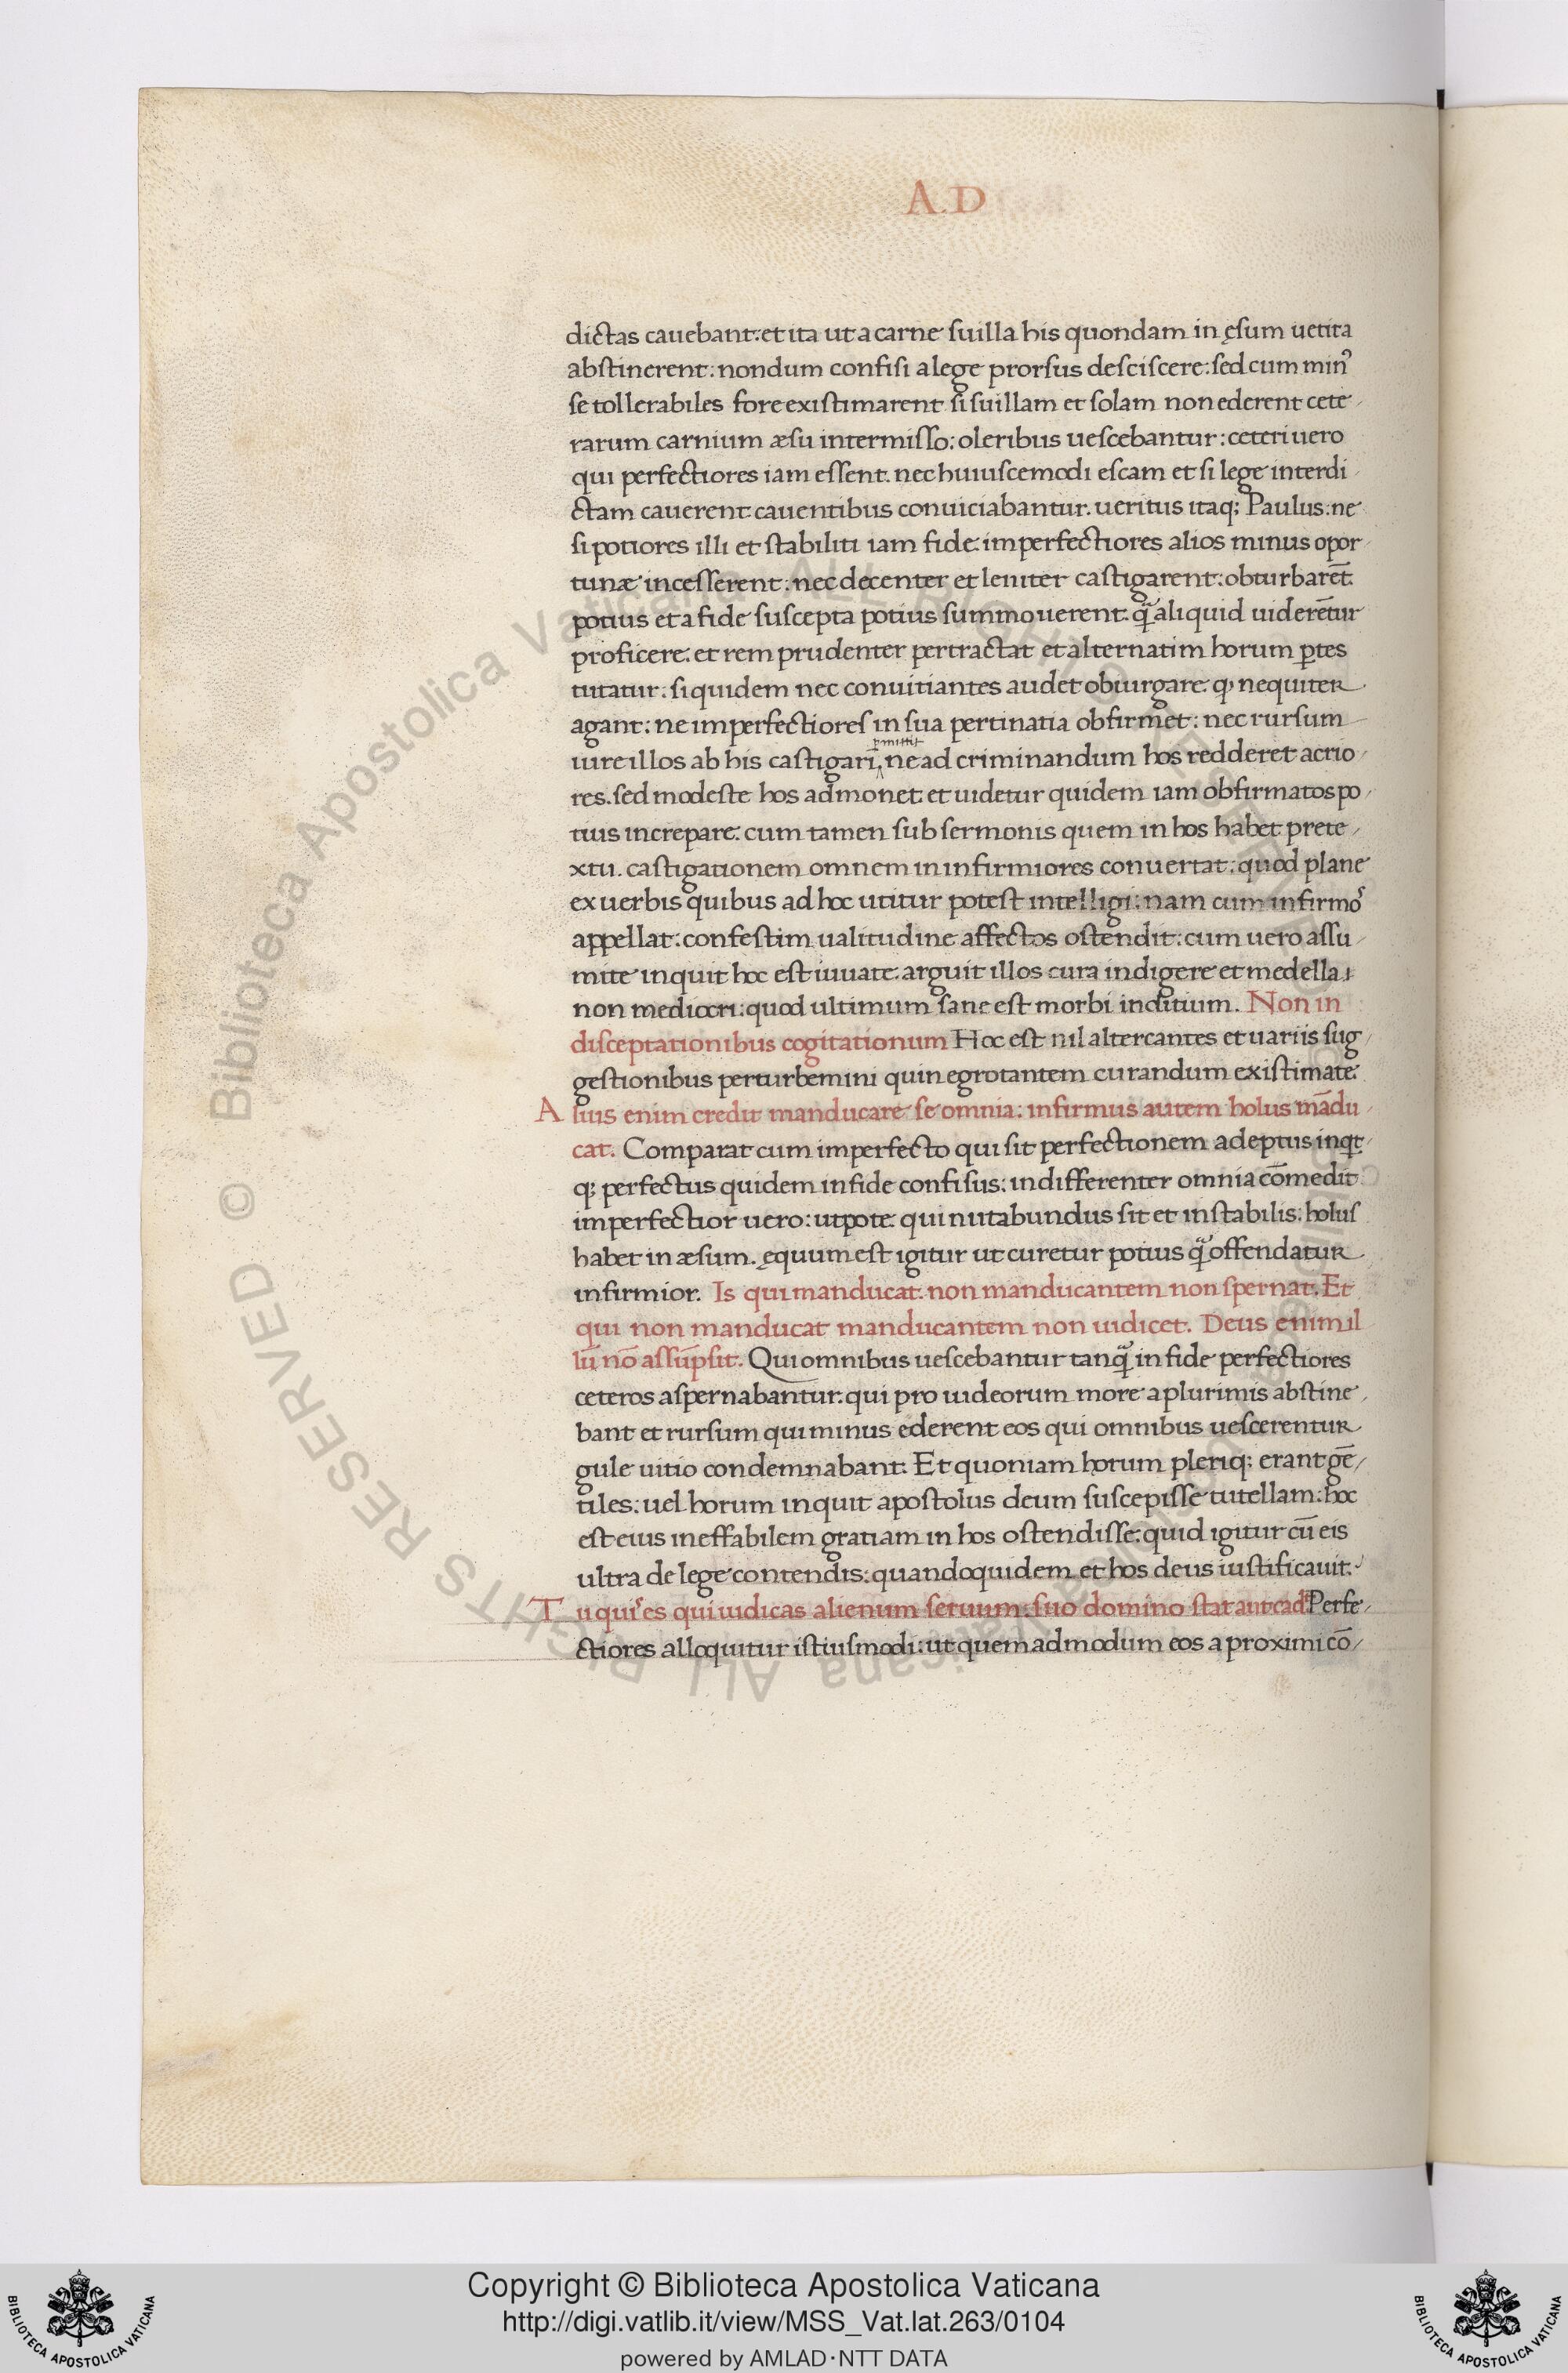 A.D
dictas cauebant: et ita ut a carne suilla his quondam in ęsum uetita
abstinerent: nondum confisi a lege prorsus desciscere: sed cum minꝰ
se tollerabiles fore existimarent si suillam et solam non ederent cete/
rarum carnium æsu intermisso: oleribus uescebantur: ceteri uero
qui perfectiores iam essent. nec huiuscemodi escam et si lege interdi/
ctam cauerent cauentibus conuiciabantur. ueritus itaq; Paulus: ne
si potiores illi et stabiliti iam fide: imperfectiores alios minus opor/
tunæ incesserent: nec decenter et leniter castigarent: obturbarēt
potius et a fide suscepta potius summouerent. q̃ aliquid uiderētur
proficere: et rem prudenter pertractat et alternatim horum ꝑtes
tutatur: siquidem nec conuitiantes audet obiurgare: ꝙ nequiter
agant: ne imperfectiores in sua pertinatia obfirmet: nec rursum
iure illos ab his castigari, ne ad criminandum hos redderet acrio/
res. sed modeste hos admonet et uidetur quidem iam obfirmatos po/
tius increpare: cum tamen sub sermonis quem in hos habet prete/
xtu. castigationem omnem in infirmiores conuertat: quod plane
ex uerbis quibus ad hoc utitur potest intelligi: nam cum infirmoˢ
appellat: confestim ualitudine affectos ostendit: cum uero assu/
mite inquit hoc est iuuate: arguit illos cura indigere et medella
non mediocri: quod ultimum sane est morbi inditium. Non in
disceptationibus cogitationum Hoc est nil altercantes et uariis sug/
gestionibus perturbemini quin egrotantem curandum existimate:
A lius enim credit manducare se omnia: infirmus autem holus mādu/
cat. Comparat cum imperfecto qui sit perfectionem adeptus inqt/
q; perfectus quidem in fide confisus: indifferenter omnia cōmedit
imperfectior uero: utpote qui nutabundus sit et instabilis: holus
habet in æsum. ęquum est igitur ut curetur potius q̃ offendatur
infirmior. Is qui manducat non manducantem non spernat. Et
qui non manducat manducantem non iudicet. Deus enim il
lū nō assūpsit. Qui omnibus uescebantur tanq̃ in fide perfectiores
ceteros aspernabantur. qui pro iudeorum more a plurimis abstine/
bant et rursum qui minus ederent eos qui omnibus uescerentur
gule uitio condemnabant. Et quoniam horum pleriq; erant gē/
tiles: uel horum inquit apostolus deum suscepisse tutellam: hoc
est eius ineffabilem gratiam in hos ostendisse: quid igitur cū eis
ultra de lege contendis: quandoquidem et hos deus iustificauit.
T u quis es qui iudicas alienum seruum: suo domino stat aut cad Perfe/
ctiores alloquitur istiusmodi: ut quemadmodum eos a proximi cō/
© Biblioteca Apostolica Vaticana ALL RIGHTS RESERVED
Copyright © Biblioteca Apostolica Vaticana
http://digi.vatlib.it/view/MSS_Vat.lat.263/0104
powered by AMLAD·NTT DATA
BIBLIOTECA APOSTOLICA VATICANA
BIBLIOTECA APOSTOLICA VATICANA